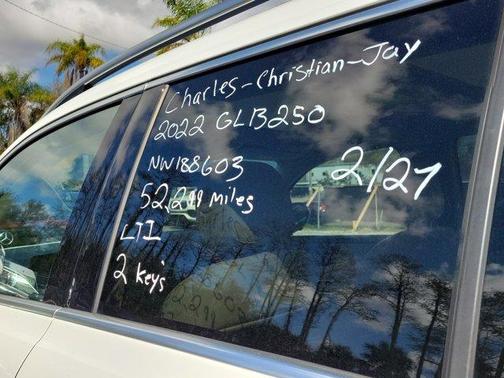 Charles-Christian-Jay
2022 GLB250
NW188603
2/27
52,299 miles
LTI
2 key's